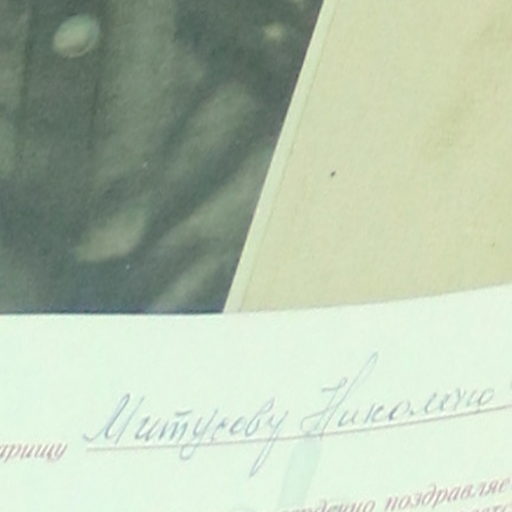 арищу Митусову Николаю
сердечно поздравляе